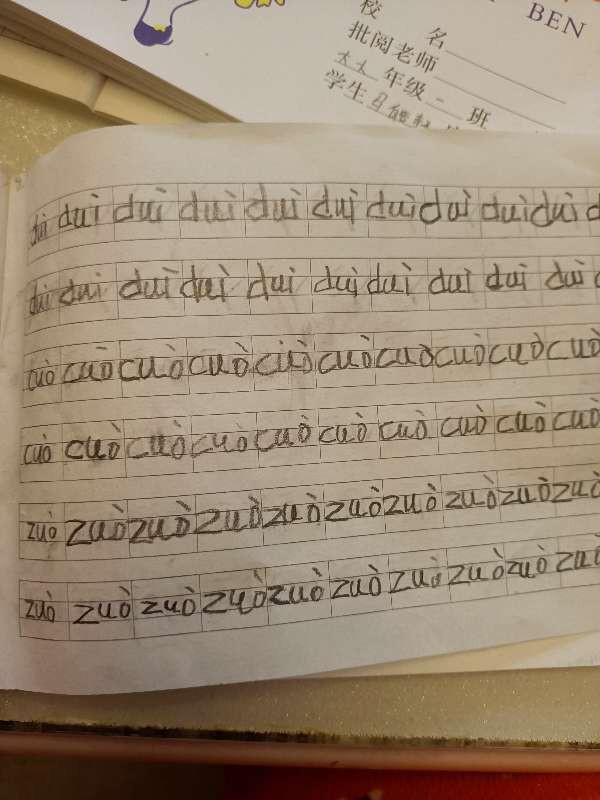 BEN
校 名
批阅老师
大大 年级 一 班
学生
duì duì duì duì duì duì duì duì duì duì
duì duì duì duì duì duì duì duì duì duì
cuò cuò cuò cuò cuò cuò cuò cuò cuò cuò
cuò cuò cuò cuò cuò cuò cuò cuò cuò cuò
zuò zuò zuò zuò zuò zuò zuò zuò zuò zuò
zuò zuò zuò zuò zuò zuò zuò zuò zuò zuò